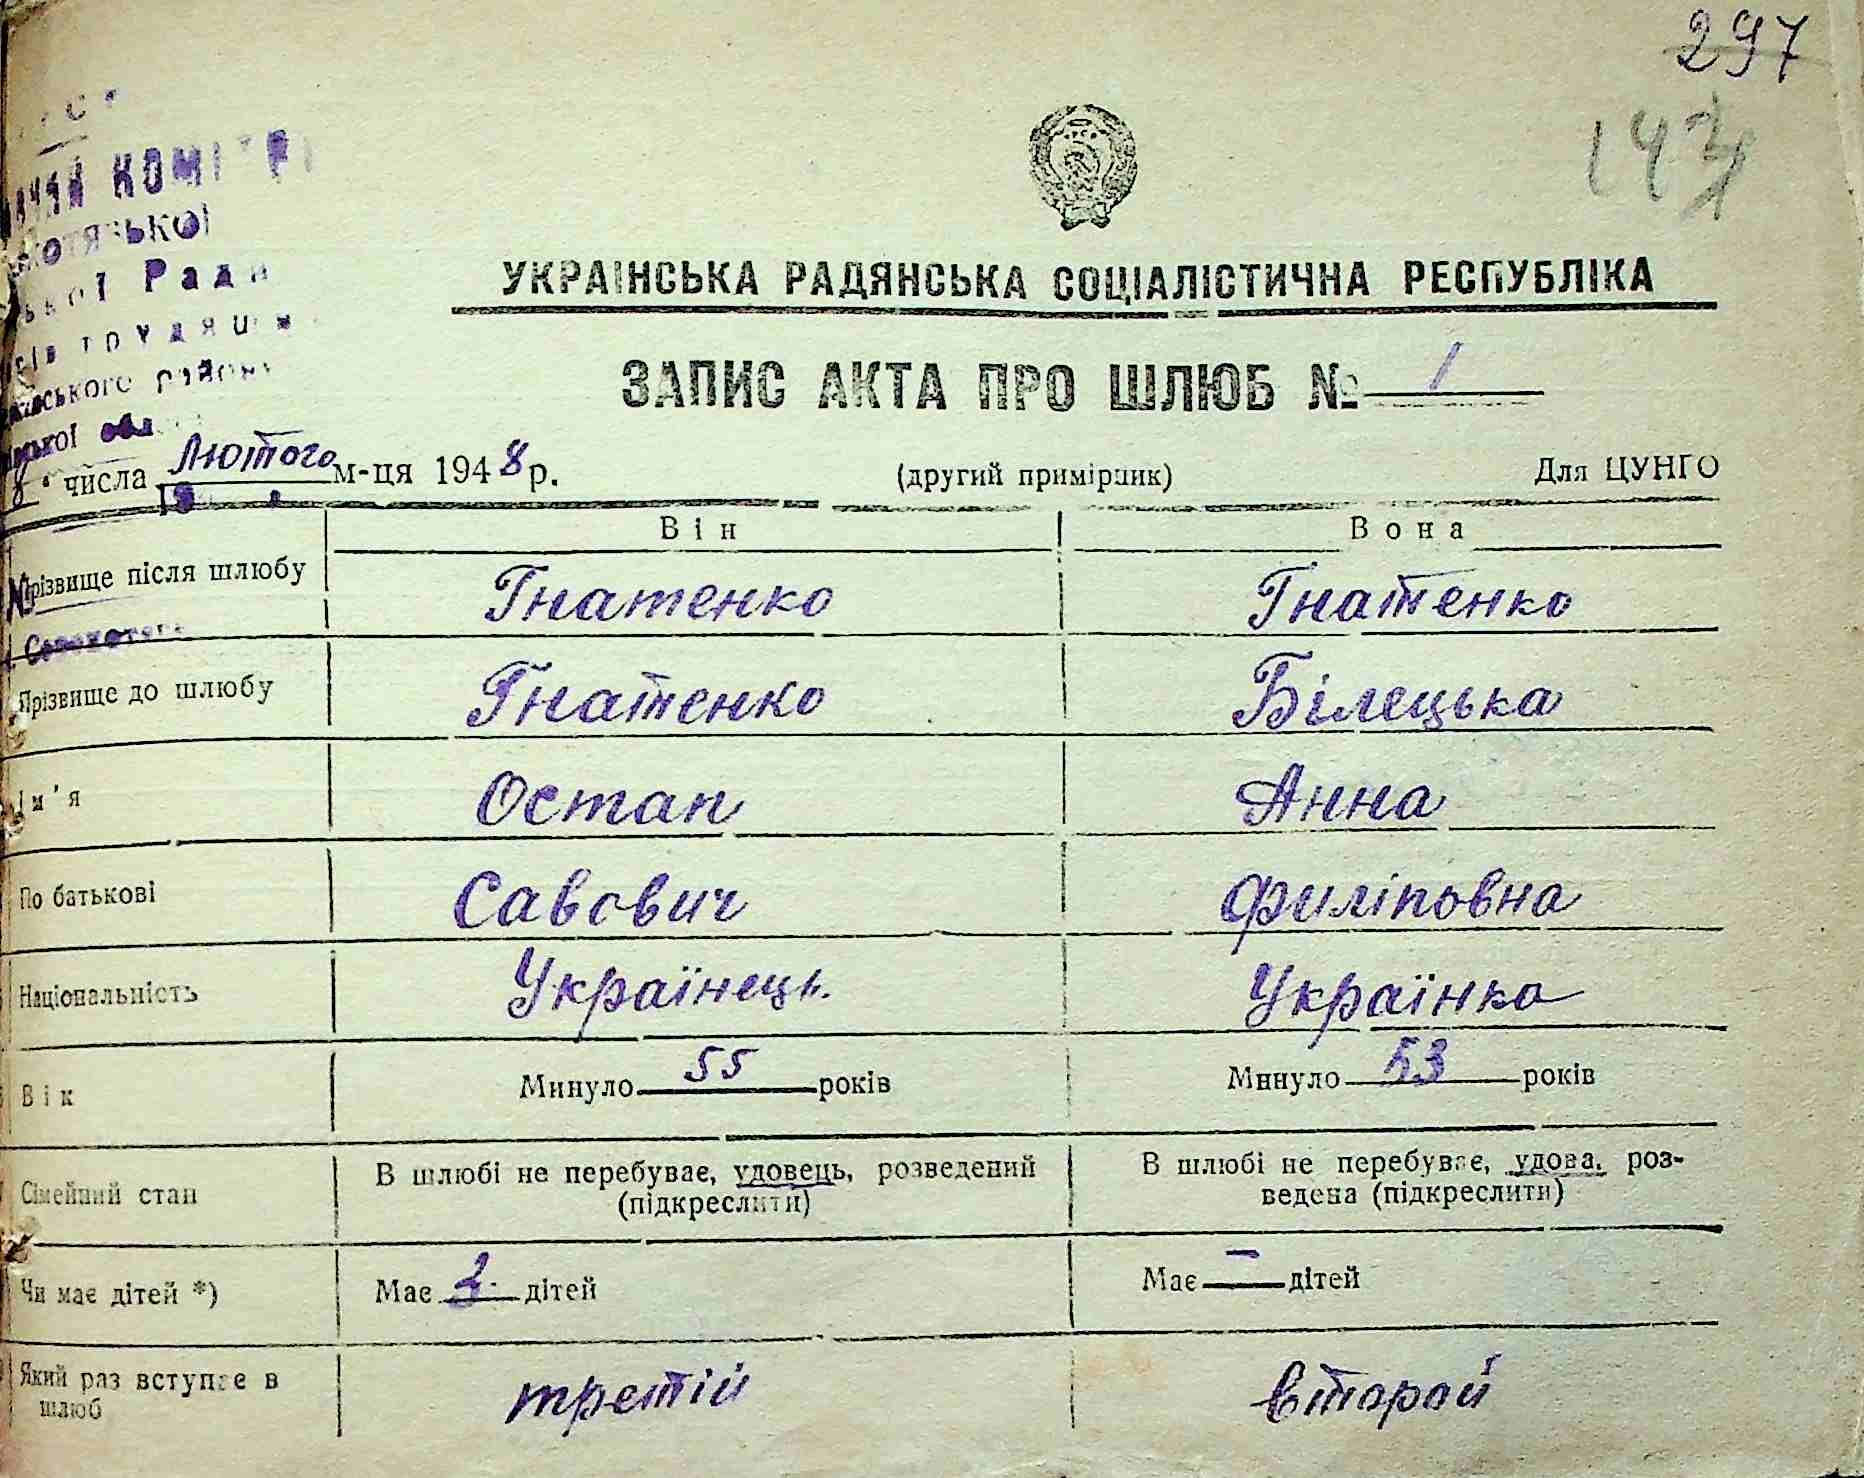 297
143
КОМІТЕТ
Ради
трудящих
району
УКРАЇНСЬКА РАДЯНСЬКА СОЦІАЛІСТИЧНА РЕСПУБЛІКА
ЗАПИС АКТА ПРО ШЛЮБ № 1
8 числа Лютого м-ця 1948 р. (другий примірник) Для ЦУНГО
Він Вона
Прізвище після шлюбу Гнатенко Гнатенко
Прізвище до шлюбу Гнатенко Білецька
Ім'я Остап Анна
По батькові Савович Филіповна
Національність Українець. Українка
Вік Минуло 55 років Минуло 53 років
Сімейний стан В шлюбі не перебуває, удовець, розведений (підкреслити) В шлюбі не перебуває, удова, роз-
ведена (підкреслити)
Чи має дітей *) Має 2. дітей Має — дітей
Який раз вступає в шлюб третій второй